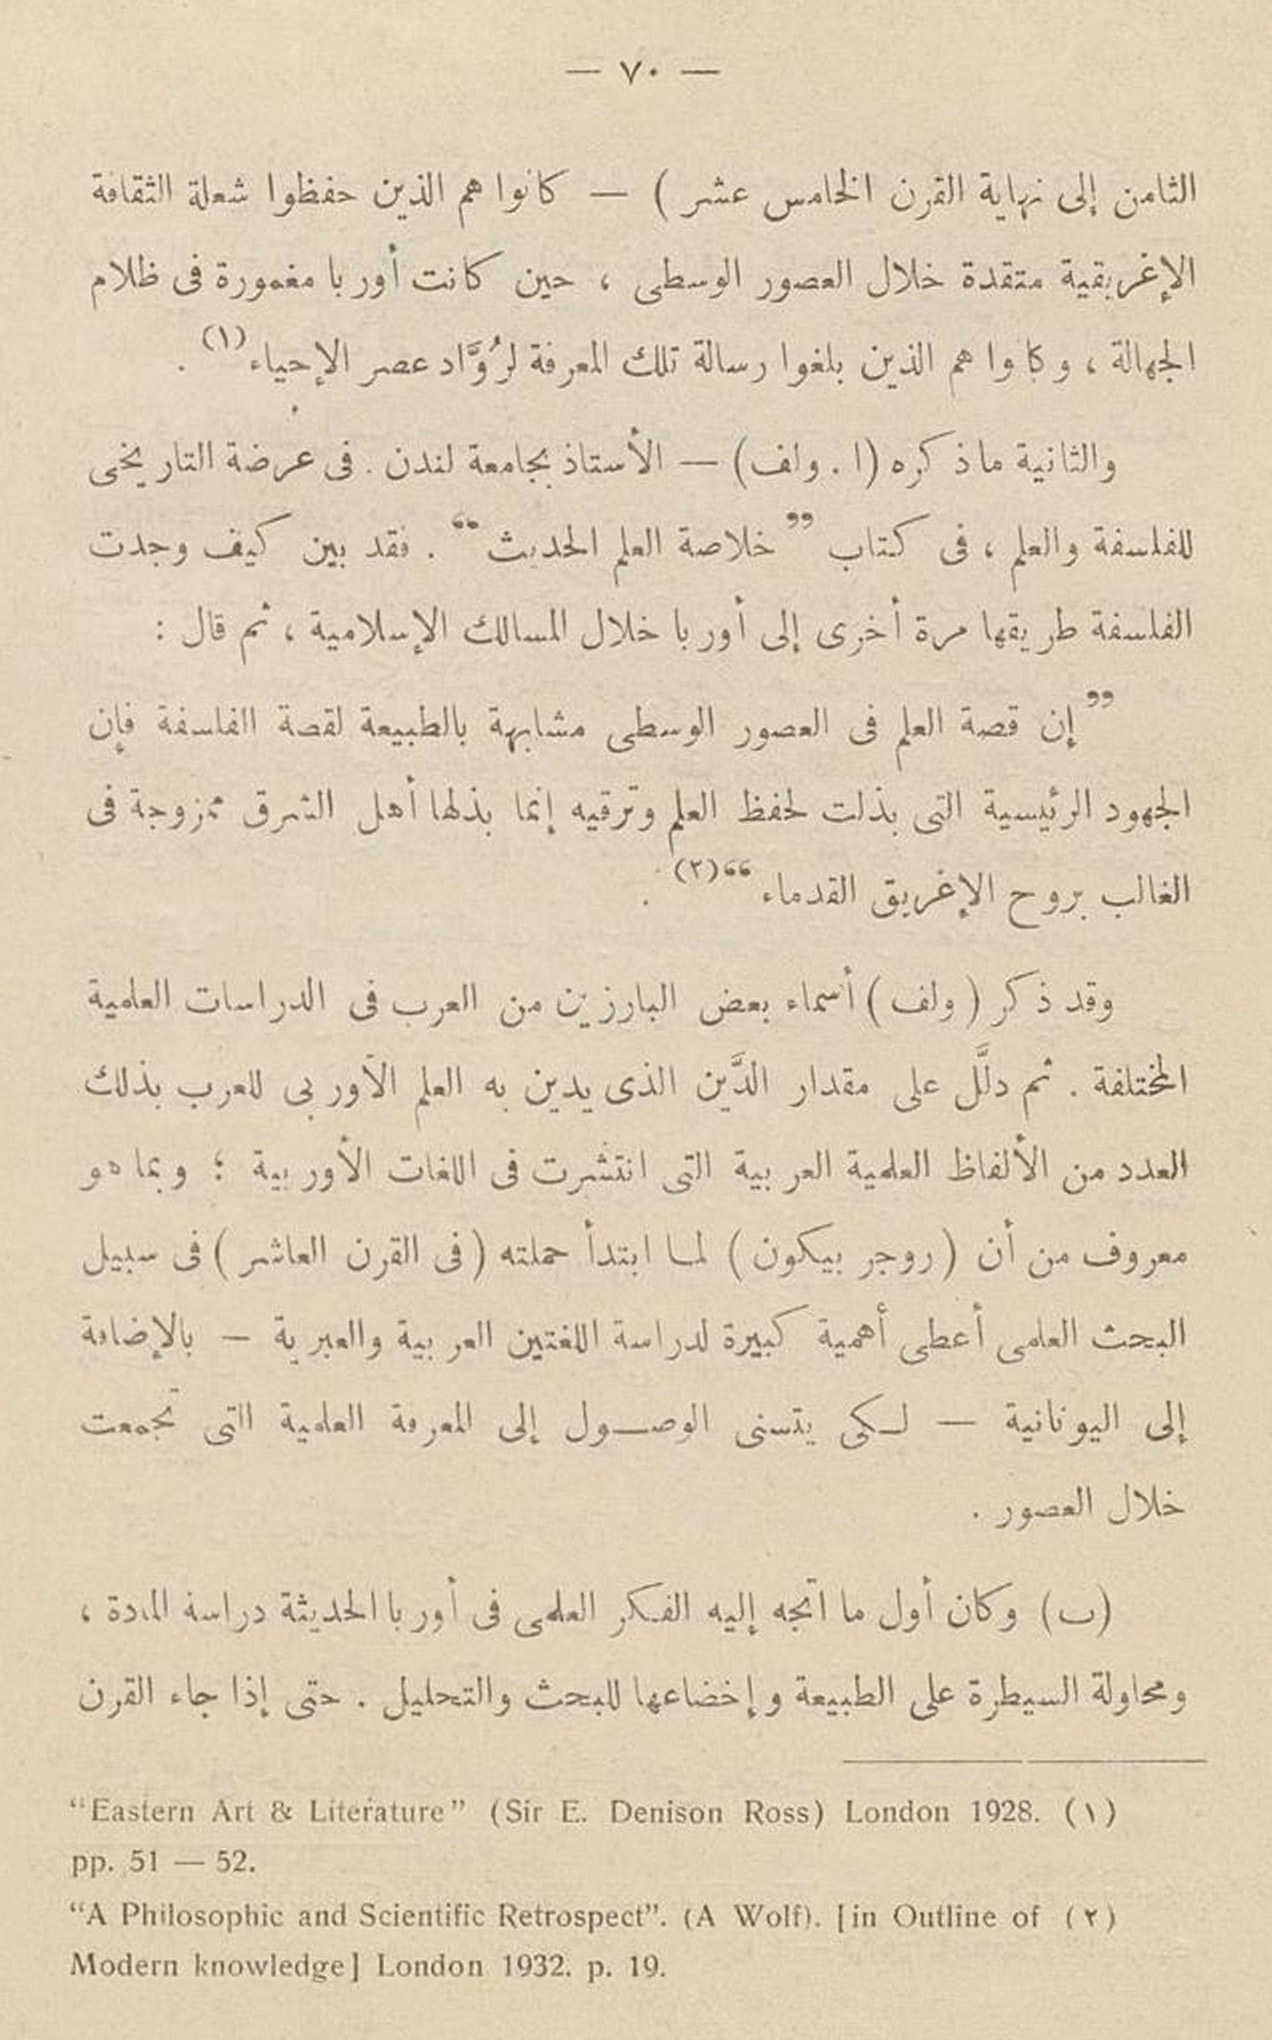 — ٧٠ —
الثامن إلى نهاية القرن الخامس عشر ) — كانوا هم الذين حفظوا شعلة الثقافة
الإغريقية متقدة خلال العصور الوسطى ، حين كانت أوربا مغمورة فى ظلام
الجهالة ، وكانوا هم الذين بلغوا رسالة تلك المعرفة لرُوَّاد عصر الإحياء (١) .
والثانية ما ذكره (ا . ولف) — الأستاذ بجامعة لندن . فى عرضة التاريخى
للفلسفة والعلم ، فى كتاب ” خلاصة العلم الحديث “ . فقد بين كيف وجدت
الفلسفة طريقها مرة أخرى إلى أوربا خلال المسالك الإسلامية ، ثم قال :
” إن قصة العلم فى العصور الوسطى مشابهة بالطبيعة لقصة الفلسفة فإن
الجهود الرئيسية التى بذلت لحفظ العلم وترقيه إنما بذلها أهل الشرق ممزوجة فى
الغالب بروح الإغريق القدماء “ (٢) .
وقد ذكر ( ولف ) أسماء بعض البارزين من العرب فى الدراسات العلمية
المختلفة . ثم دلَّل على مقدار الدَّين الذى يدين به العلم الأوربى للعرب بذلك
العدد من الألفاظ العلمية العربية التى انتشرت فى اللغات الأوربية ؛ وبما هو
معروف من أن ( روجر بيكون ) لما ابتدأ حملته ( فى القرن العاشر ) فى سبيل
البحث العلمى أعطى أهمية كبيرة لدراسة اللغتين العربية والعبرية — بالإضافة
إلى اليونانية — لكى يتسنى الوصول إلى المعرفة العلمية التى تجمعت
خلال العصور .
(ب) وكان أول ما اتجه إليه الفكر العلمى فى أوربا الحديثة دراسة المادة ،
ومحاولة السيطرة على الطبيعة وإخضاعها للبحث والتحليل . حتى إذا جاء القرن
“Eastern Art & Literature” (Sir E. Denison Ross) London 1928. (١)
pp. 51 — 52.
“A Philosophic and Scientific Retrospect”. (A Wolf). [in Outline of (٢)
Modern knowledge] London 1932. p. 19.